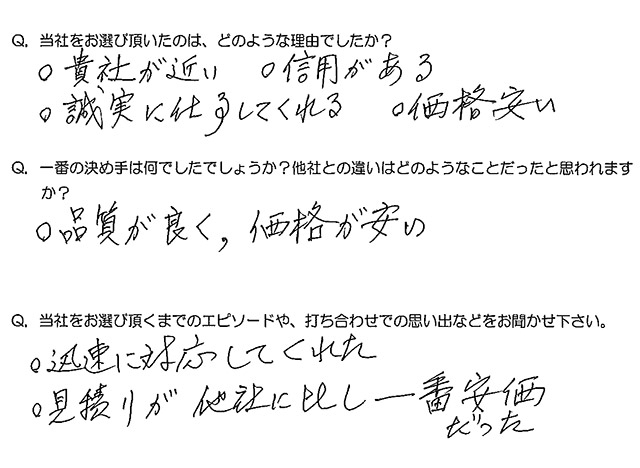 Q. 当社をお選び頂いたのは、どのような理由でしたか？
○貴社が近い ○信用がある
○誠実に仕事してくれる ○価格安い
Q. 一番の決め手は何でしたでしょうか？他社との違いはどのようなことだったと思われます
か？
○品質が良く, 価格が安い
Q. 当社をお選び頂くまでのエピソードや、打ち合わせでの思い出などをお聞かせ下さい。
○迅速に対応してくれた
○見積りが他社に比し一番安価
だった